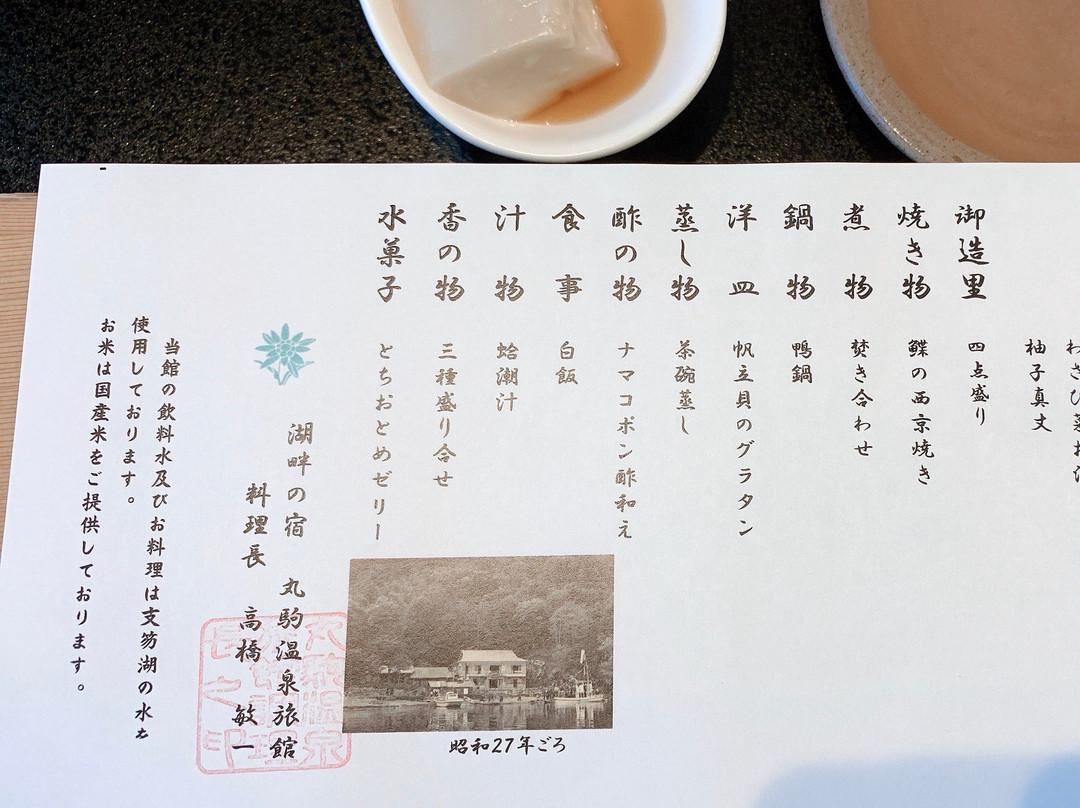 柚子真丈
御造里 四点盛り
焼き物 鰈の西京焼き
煮物 焚き合わせ
鍋物 鴨鍋
洋皿 帆立貝のグラタン
蒸し物 茶碗蒸し
酢の物 ナマコポン酢和え
食事 白飯
汁物 蛤潮汁
香の物 三種盛り合せ
水菓子 とちおとめゼリー
昭和27年ごろ
湖畔の宿 丸駒温泉旅館
料理長 高橋 敏一
当館の飲料水及びお料理は支笏湖の水を
使用しております。
お米は国産米をご提供しております。